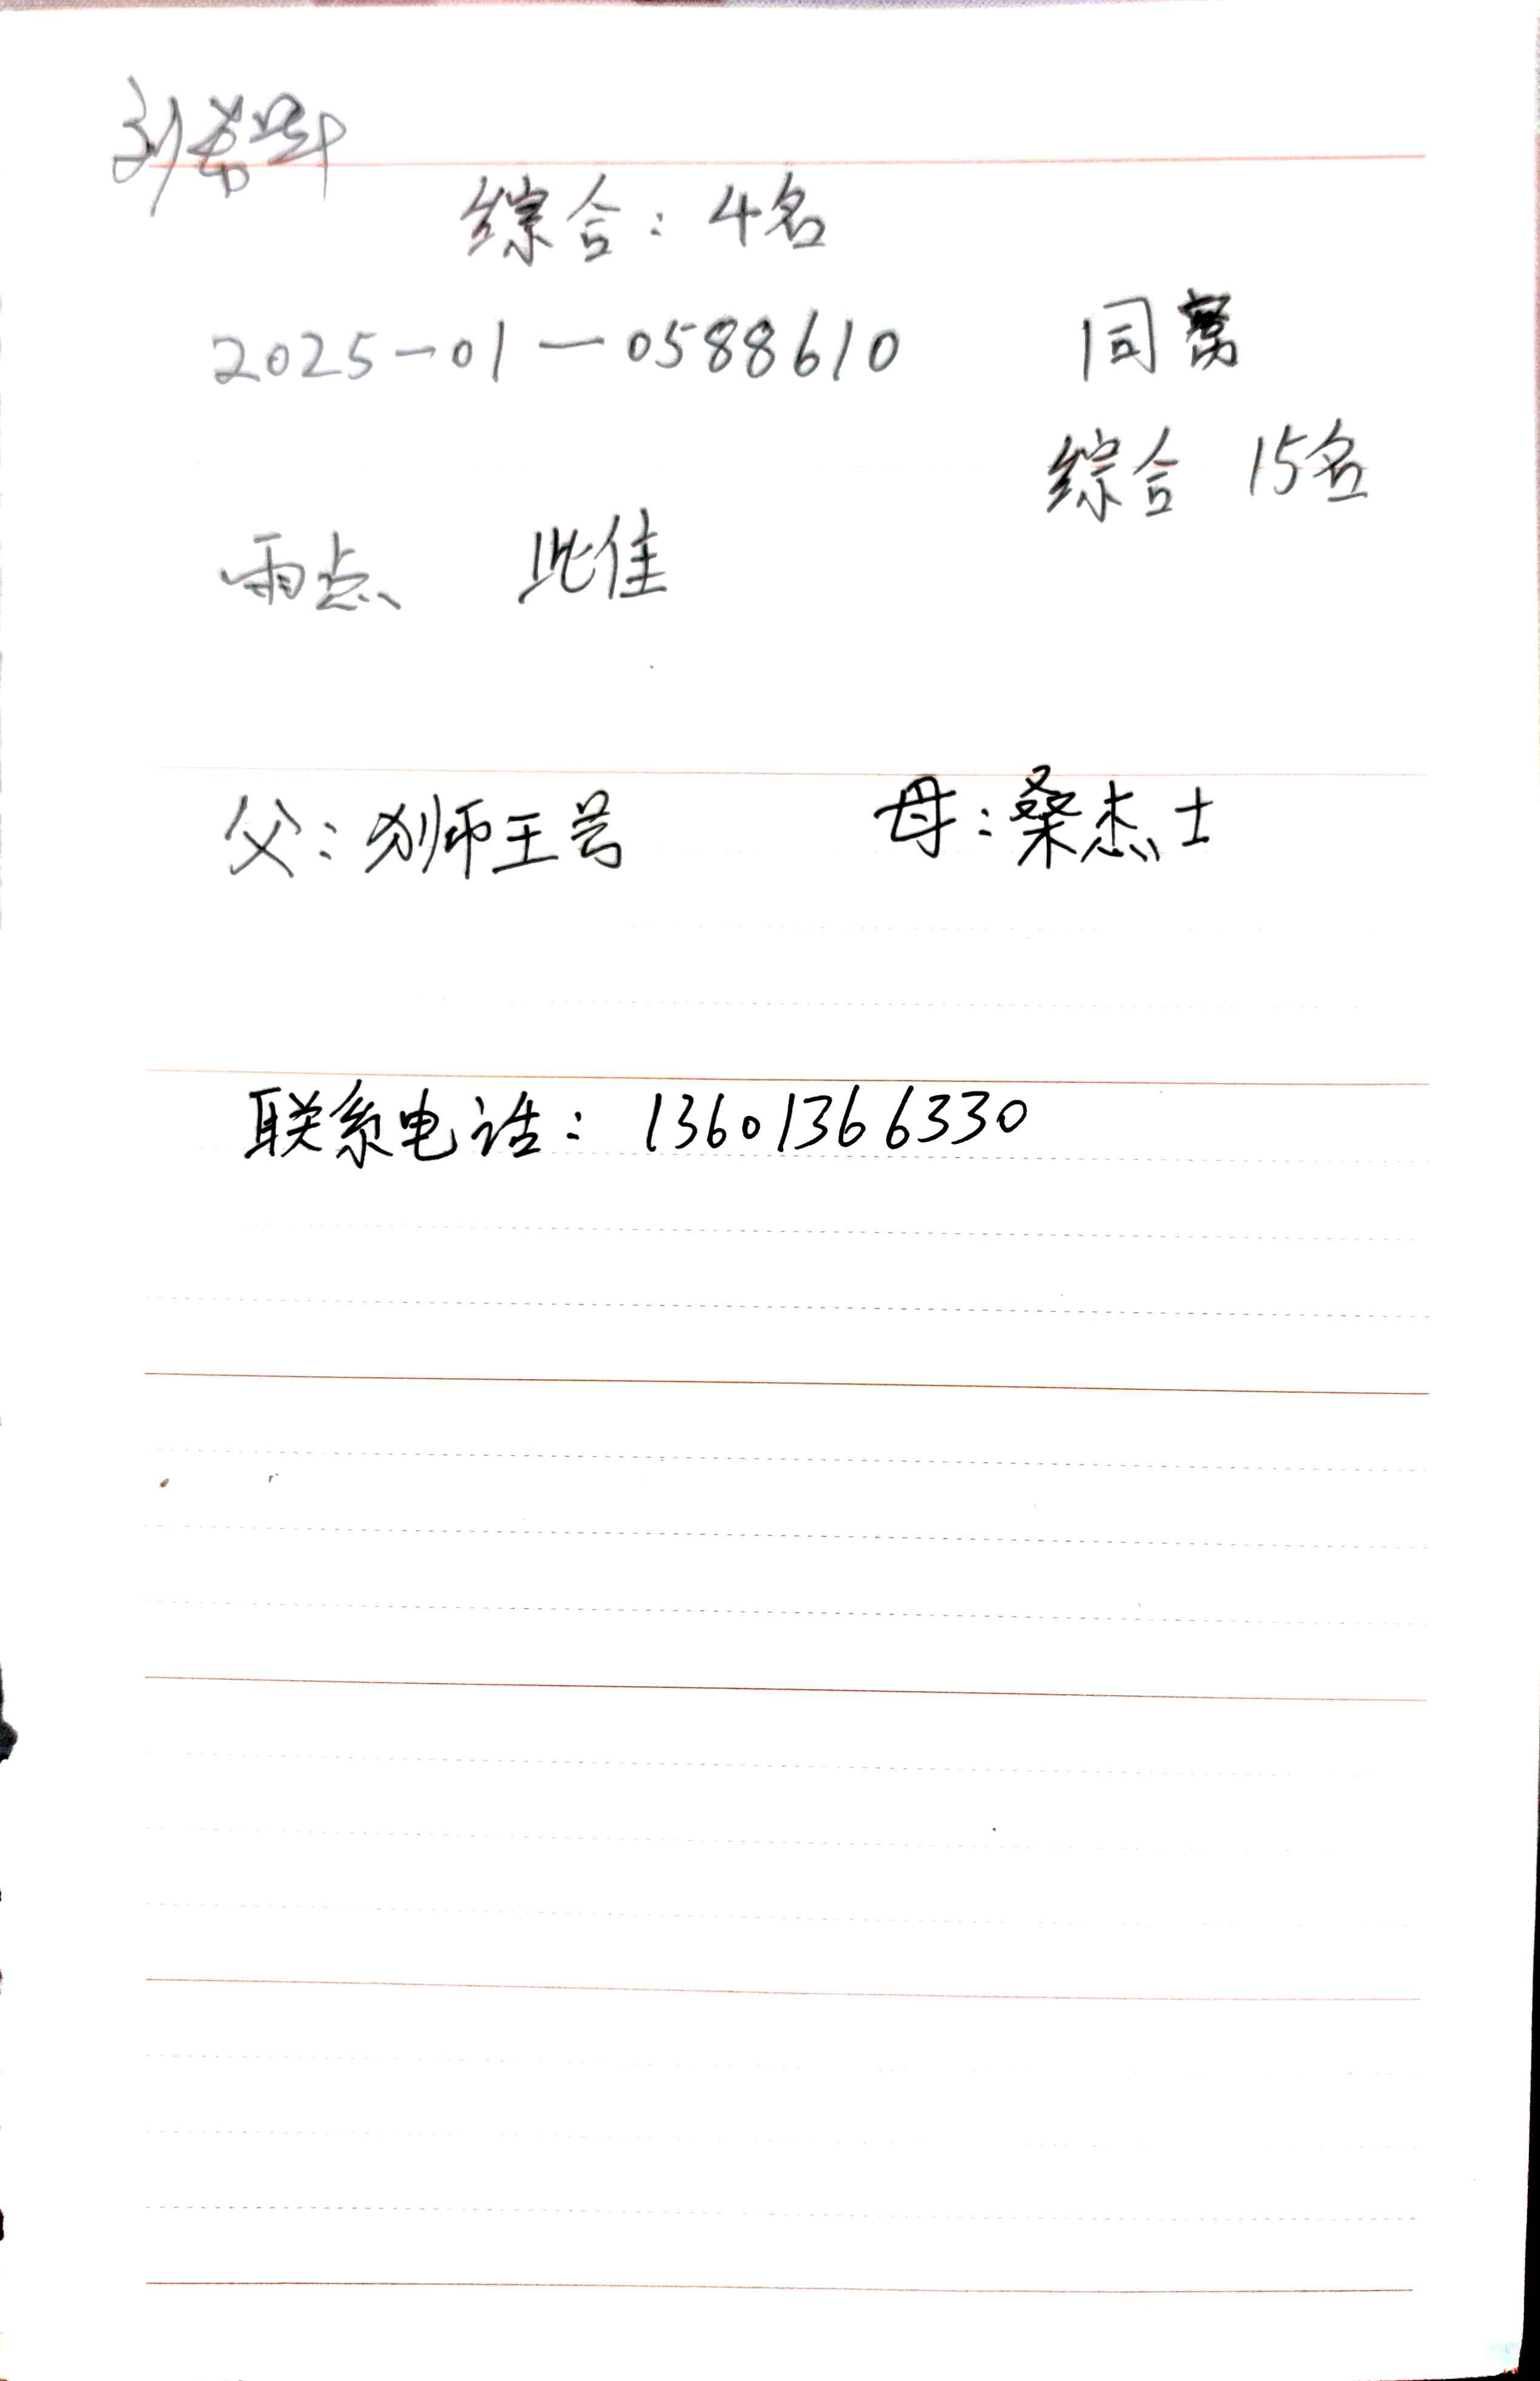 综合：4名
2025-01-0588610 同窝
综合 15名
雨点 此佳
父：狮王号 母：桑杰士
联系电话：13601366330